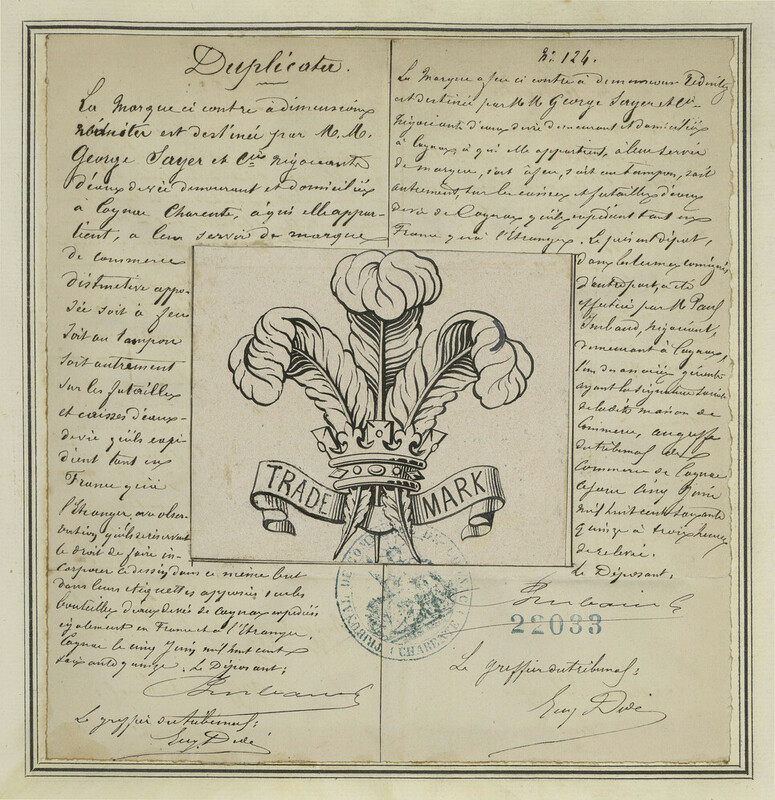 Duplicata.
La Marque ci contre à dimensions
réduites est destinée par M.M.
George Sayer et Cie négociants
d'eaux de vie demeurant et domiciliés
à Cognac Charente, à qui elle appar-
tient, à leur servir de marque
de commerce
distinctive appo-
sée soit à feu
soit au tampon
soit autrement
sur les futailles
et caisses d'eaux-
de vie qu'ils expé-
dient tant en
France qu'à
l'Étranger avec obser-
vation qu'ils se réservent
le droit de faire in-
corporer ce dessin dans ce même but
dans leurs étiquettes apposées sur les
bouteilles d'eaux de vie de Cognac expédiées
également en France et à l'Étranger.
Cognac le cinq Juin mil huit cent
soixante quinze. Le Déposant;
Imbaud
Le greffier du tribunal;
Eug. Didé
TRADE MARK
No. 124.
La Marque à feu ci contre à dimensions réduites
est destinée par M M George Sayer et Cie
Négociants d'eaux de vie demeurant et domiciliés
à Cognac à qui elle appartient, à leur servir
de marque, soit à feu, soit au tampon, soit
autrement, sur les caisses et futailles d'eaux
de vie de Cognac qu'ils expédient tant en
France qu'à l'Étranger. Le présent dépôt,
d'entrepôt, a été
effectué par M. Paul
Imbaud, négociant,
demeurant à Cognac,
l'un des associés gérants
ayant la signature sociale
de la dite maison de
Commerce, au greffe
du tribunal de
Commerce de Cognac
ce jour cinq Juin
mil huit cent soixante
quinze à trois heures
de relevée.
Le Déposant;
Imbaud
22033
TRIBUNAL DE COMMERCE DE COGNAC
(CHARENTE)
Le greffier du tribunal;
Eug. Didé